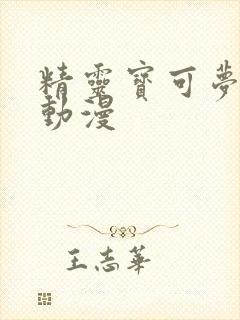 精靈寶可夢
動漫
王志華